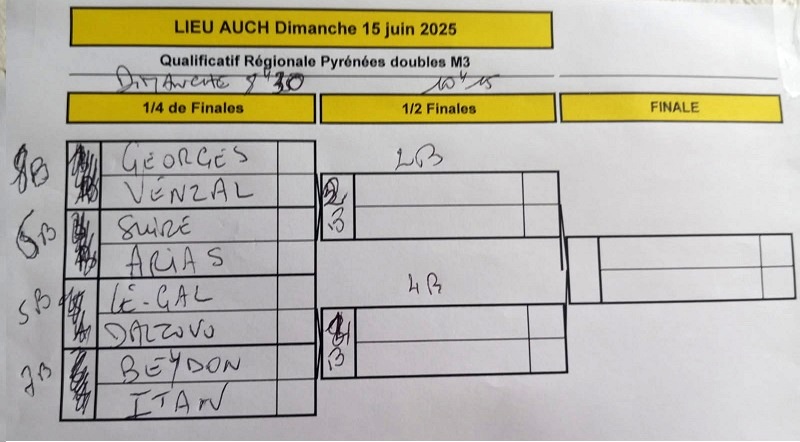 LIEU AUCH Dimanche 15 juin 2025
Qualificatif Régionale Pyrénées doubles M3
DIMANCHE 9H30
10H15
1/4 de Finales
1/2 Finales
FINALE
8B
GEORGES
VENZAL
2B
6B
SUIRE
ARIAS
5B
LE-GAL
DALZOVO
4B
7B
BEYDON
ITAN